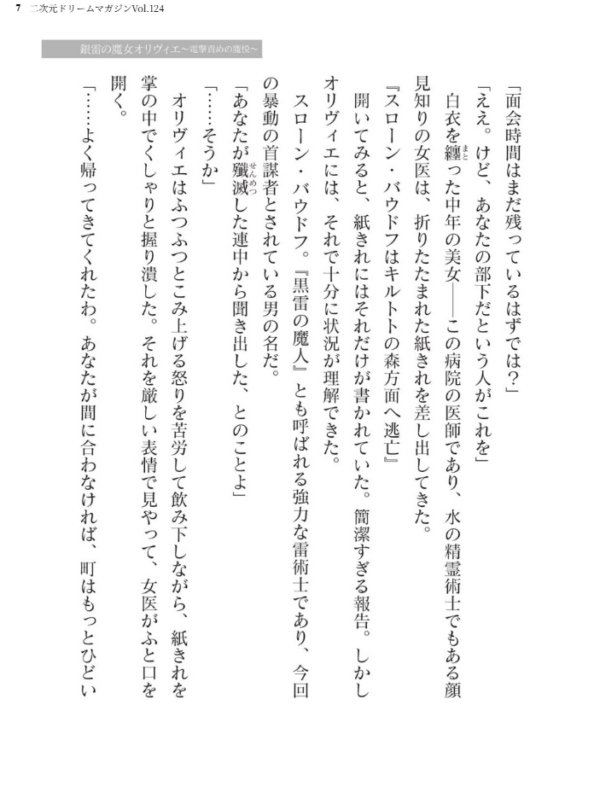 7 二次元ドリームマガジンVol.124
銀雷の魔女オリヴィエ～電撃責めの魔悦～
「面会時間はまだ残っているはずでは？」
「ええ。けど、あなたの部下だという人がこれを」
白衣を纏った中年の美女――この病院の医師であり、水の精霊術士でもある顔
まと
見知りの女医は、折りたたまれた紙きれを差し出してきた。
『スローン・バウドフはキルトトの森方面へ逃亡』
開いてみると、紙きれにはそれだけが書かれていた。簡潔すぎる報告。しかし
オリヴィエには、それで十分に状況が理解できた。
スローン・バウドフ。『黒雷の魔人』とも呼ばれる強力な雷術士であり、今回
の暴動の首謀者とされている男の名だ。
「あなたが殲滅した連中から聞き出した、とのことよ」
せんめつ
「……そうか」
オリヴィエはふつふつとこみ上げる怒りを苦労して飲み下しながら、紙きれを
掌の中でくしゃりと握り潰した。それを厳しい表情で見やって、女医がふと口を
開く。
「……よく帰ってきてくれたわ。あなたが間に合わなければ、町はもっとひどい